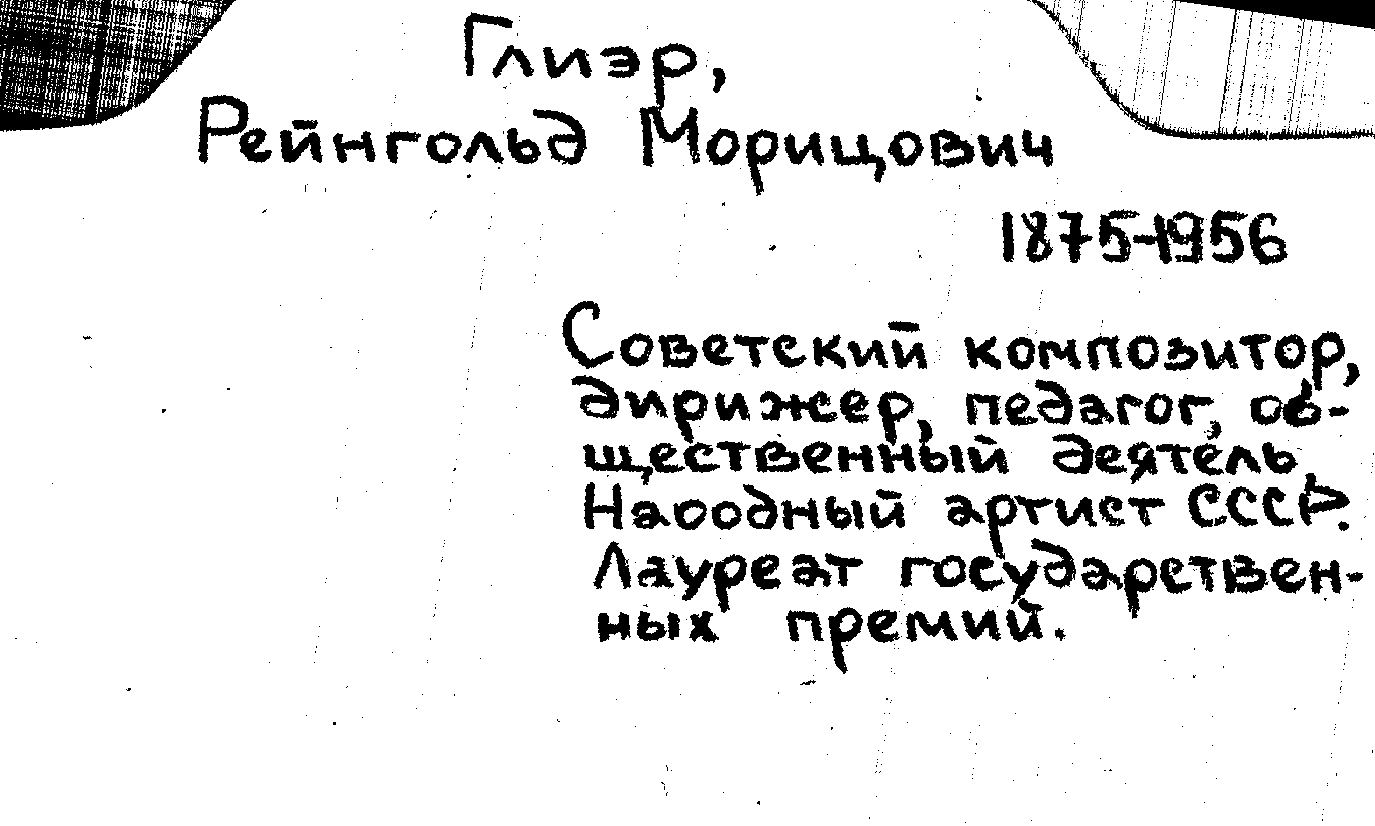 Глиэр,
Рейнгольд Морицович
1875-1956
Советский композитор,
дирижер, педагог, об-
щественный деятель,
Народный артист СССР.
Лауреат государствен-
ных премий.